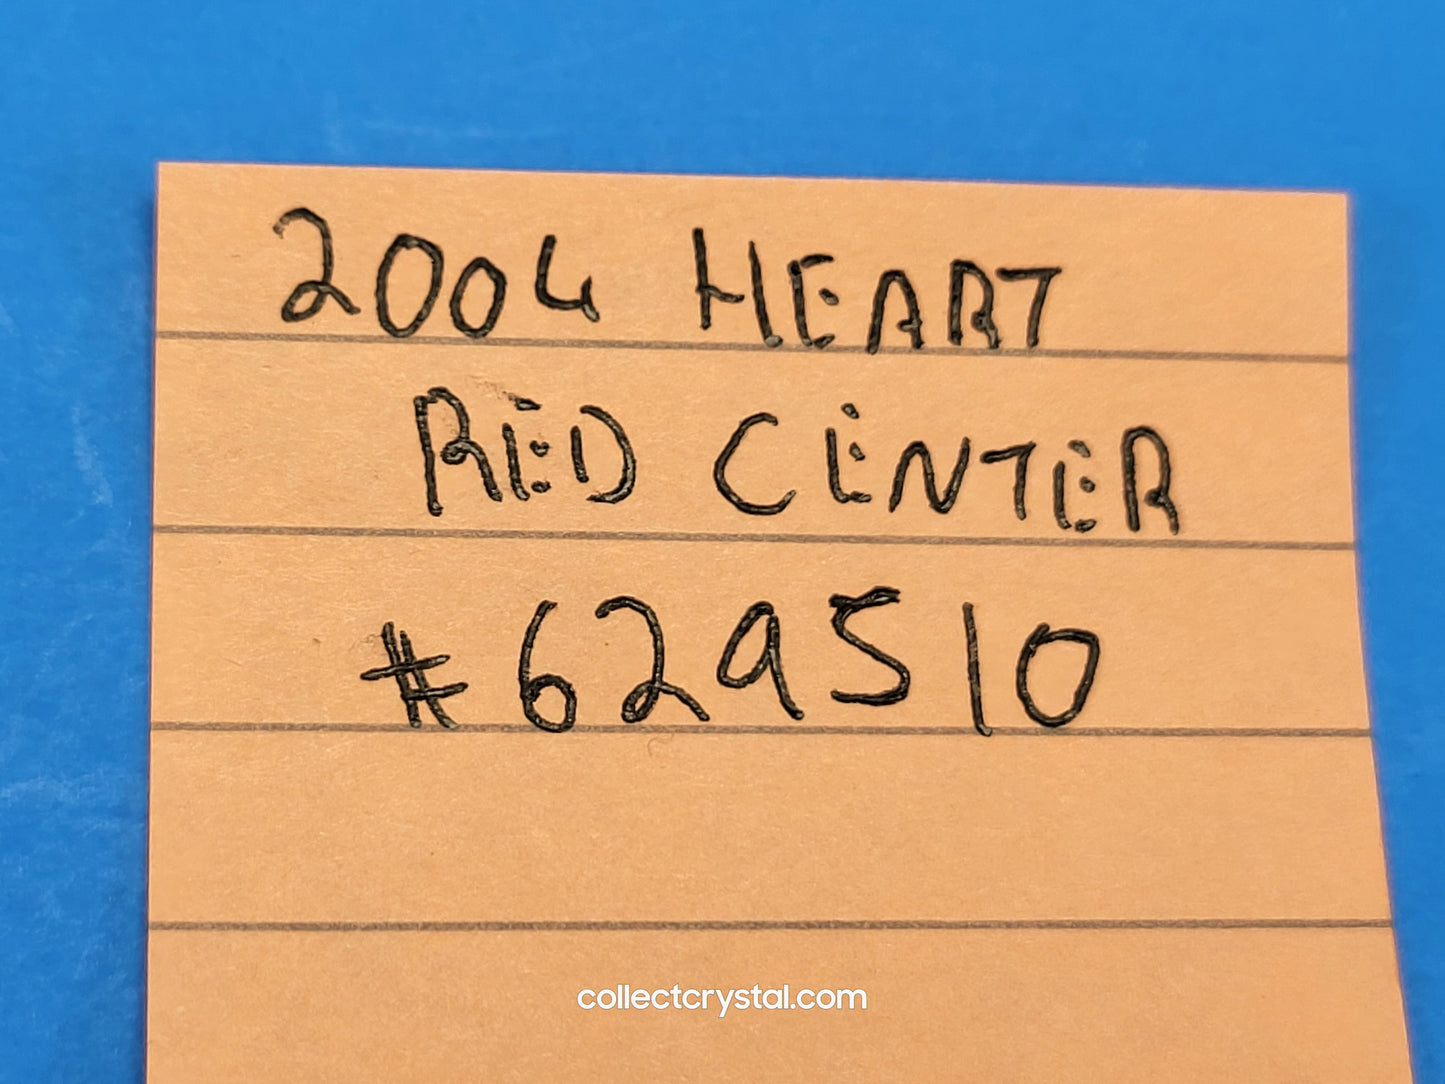 2004 HEART
RED CENTER
#629510
collectcrystal.com